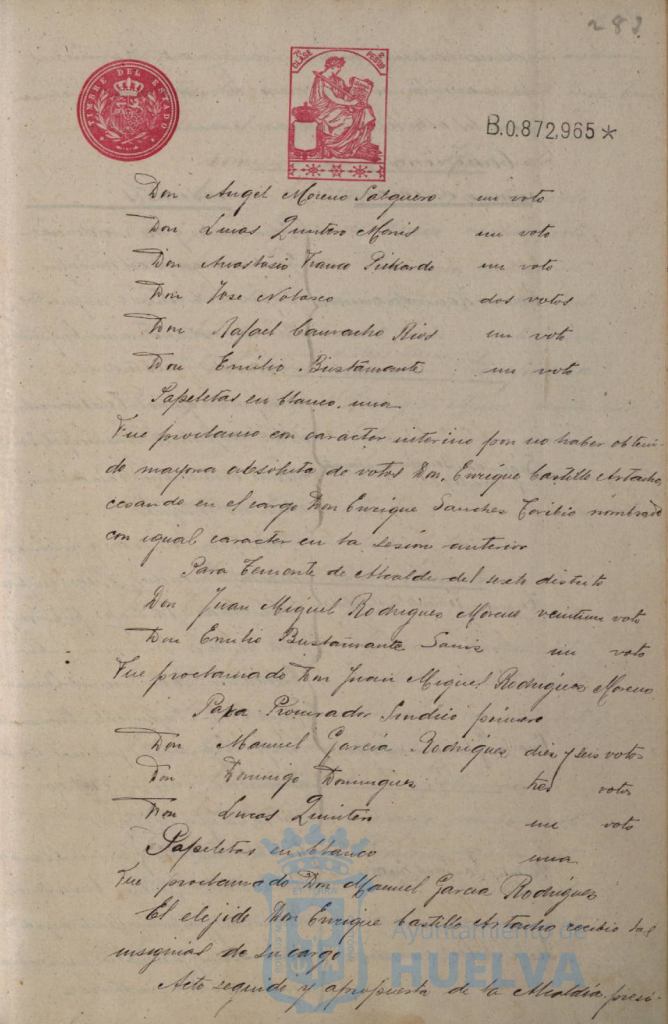 283
TIMBRE DEL ESTADO
7ª CLASE
B.0.872,965*
Don Angel Moreno Salguero un voto
Don Lucas Quintero Monis un voto
Don Anastásio Franco Pichardo un voto
Don Jose Nolasco dos votos
Don Rafael Camacho Rios un voto
Don Emilio Bustamante un voto
Papeletas en blanco, una
Fue proclamo con carácter interino por no haber obteni-
do mayoria absoluta de votos Don, Enrique Castillo Artacho,
cesando en el cargo Don Enrique Sanchez nombrado
con igual caracter en la sesión anterior
Para Teniente de Alcalde del sexto distrito
Don Juan Miguel Rodriguez Moreno veintiun voto
Don Emilio Bustamante un voto
Fue proclamado Don Juan Miguel Rodriguez Moreno
Para Procurador Sindico primero
Don Manuel García Rodriguez diez y seis votos
Don Domingo Dominguez tres votos
Don Lucas Quintero un voto
Papeletas en blanco una
Fue proclamado Don Manuel García Rodriguez
El elejido Don Enrique Castillo Artacho recibio las
insignias de su cargo
Acto seguido y apropuesta de la Alcaldía presi-
Ayuntamiento de
HUELVA